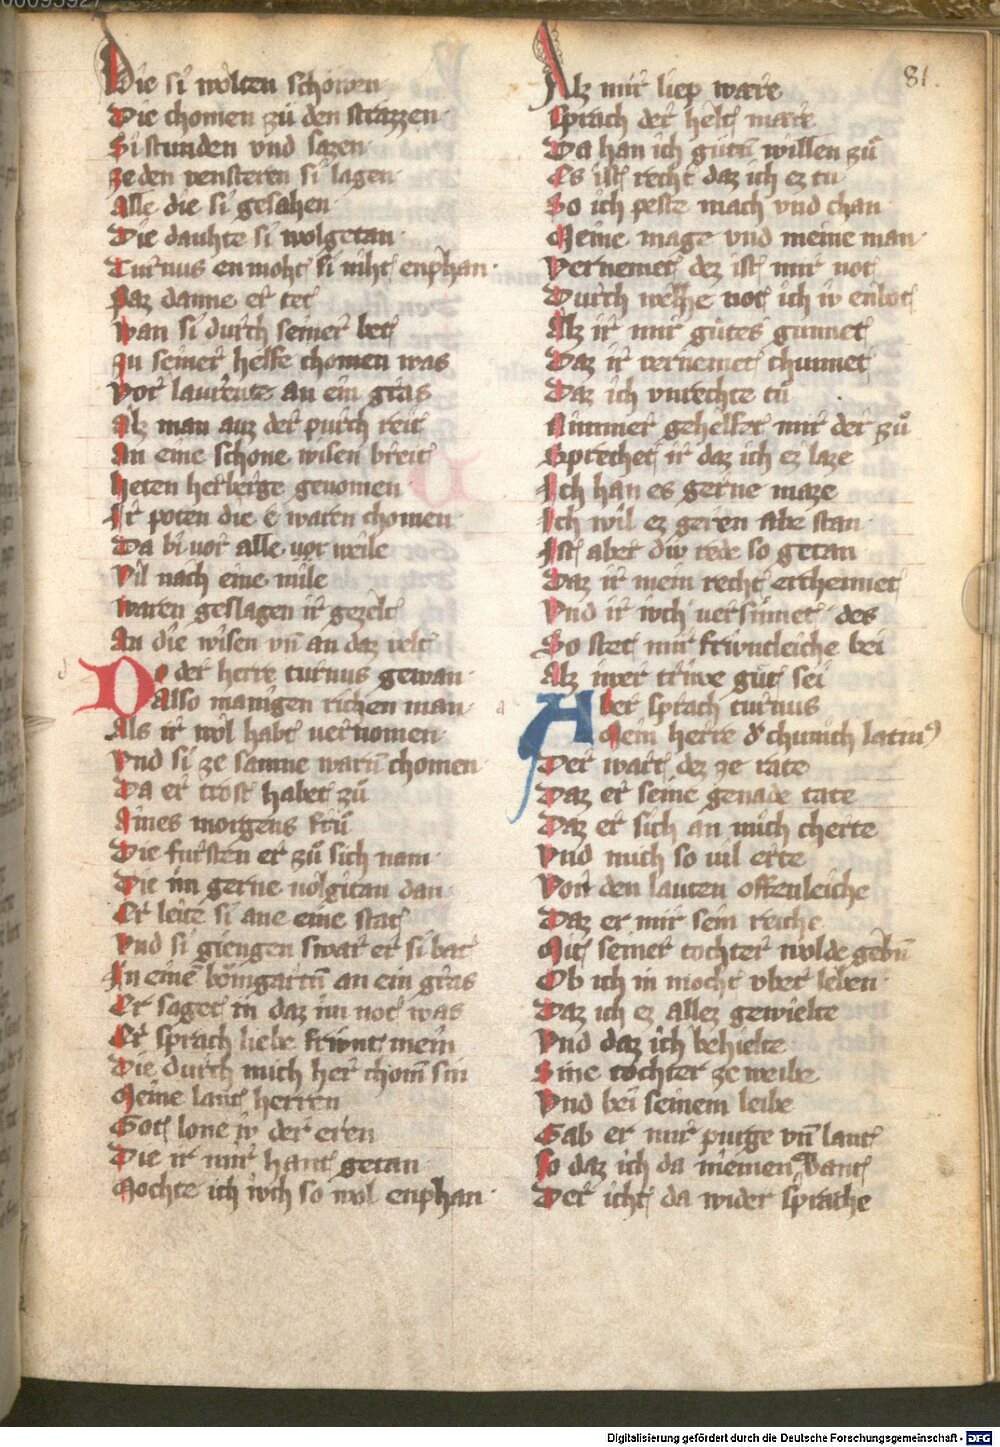 81.
Die si wolten schowen
Die chomen zů den strazzen
Si stunden vnd sazen
ze den vensteren si lagen
Alle die si gesahen
Die dauhte si wolgetan
Turnus en moht si niht enphan
Paz danne er tet
wan si durch seiner bet
zu seiner helfe chomen was
Vor laurente an ein gras
Alz man auz der purch reit
An eine schone wisen breit
heten herberge genomen
Ir poten die e warn chomen
Da bi uor alle uor weile
Vil nach eine mile
waren geslagen ir gezelt
An die wisen vn̄ an daz velt
Do der herre turnus gewan
Also manigen richen man
Als ir wol habt uernomen
Vnd si ze samne warn̄ chomen
Da er trost habet zů
Aines morgens frů
Die fursten er zů sich nam
Die im gerne uolgitan dan
Er leite si ane eine stat
Vnd si giengen swar er si bat
In eine bomgartn̄ an ein gras
Er saget in daz im not was
Er sprach liebe friwnt mein
Die durch mich her chom̄ sin
Meine lant herren
Got lone iw der eren
Die ir mir hant getan
Mochte ich iwch so wol enphan
Alz mir liep were
Sprach der helt mare
Da han ich gutn̄ willen zů
Es ist recht daz ich ez tu
So ich peste mach vnd chan
Meine mage vnd meine man
Vernemet dez ist mir not
Durch welhe not ich iw enbot
Alz ir mir gutes gunnet
Daz ir vernemet chunnet
Daz ich vnrechte tů
Nimmer gehelfet mir der zů
Sprechet ir daz ich ez laze
Ich han es gerne maze
Ich wil ez geren abe stan
Ist aber diw rede so getan
Daz ir mein recht erchennet
Vnd ir iwch uersinnet des
So stet mir friwntleiche bei
Alz iwer triwe gut sei
Aber sprach turnus
Mein herre d͛ chunich latin⁹
Der wart dez ze rate
Daz er seine genade tate
Daz er sich an mich cherte
Vnd mich so uil erte
Von den lauten offenleiche
Daz er mir sein reiche
Mit seiner tochter wolde gebn̄
Ob ich in mocht vber leben
Daz ich ez allez gewielte
Vnd daz ich behielte
Sine tochter ze weibe
Vnd bei seinem leibe
Gab er mir purge vn̄ lant
So daz ich da niemen vant
Der icht da wider sprache
Digitalisierung gefördert durch die Deutsche Forschungsgemeinschaft - DFG